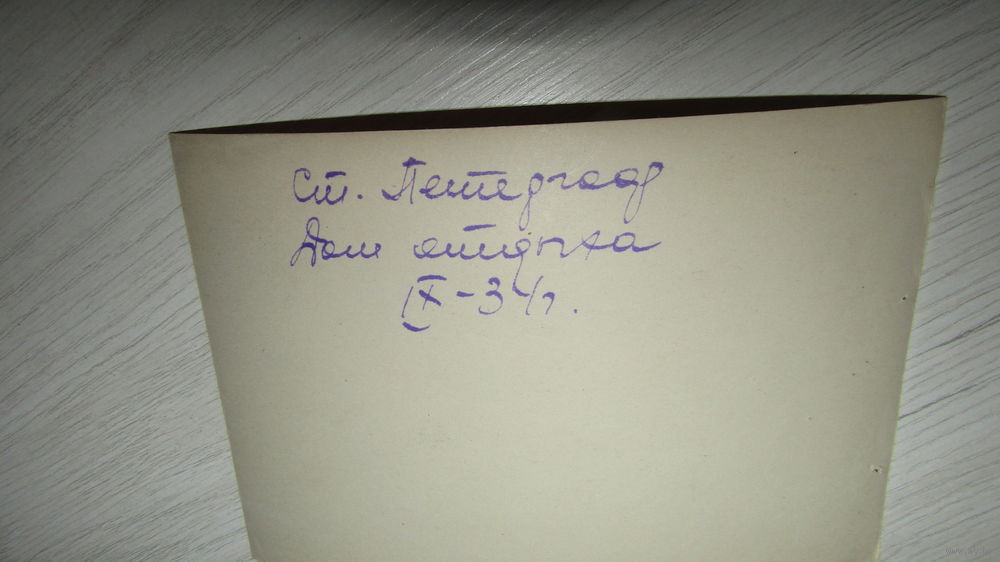 Ст. Петергоф
Дом отдыха
IX-34г.